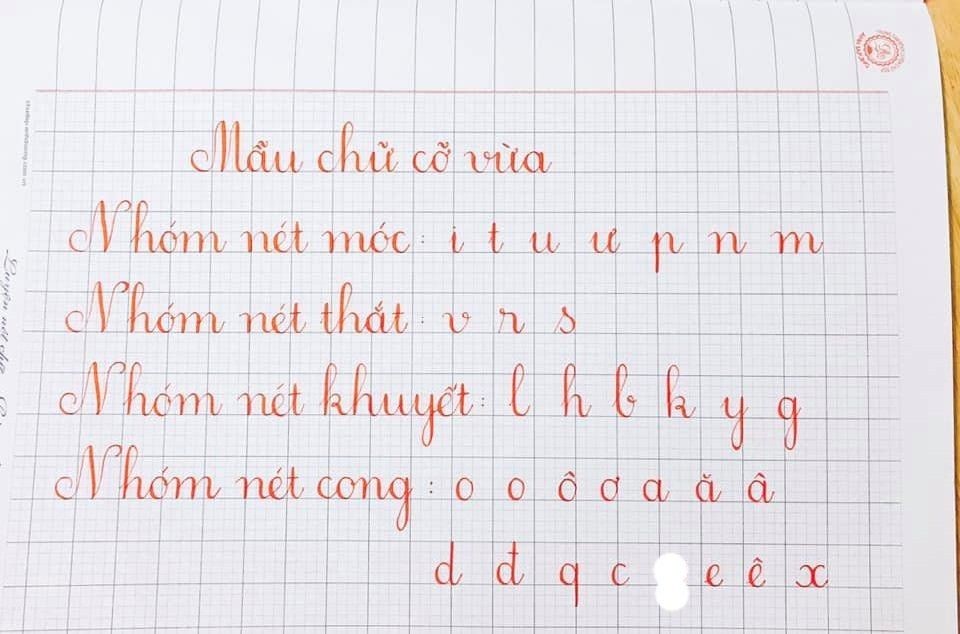 Mẫu chữ cỡ vừa
Nhóm nét móc: i t u ư p n m
Nhóm nét thắt: v r s
Nhóm nét khuyết: l h b k y g
Nhóm nét cong: o o ô ơ a ă â
d đ q c e ê x